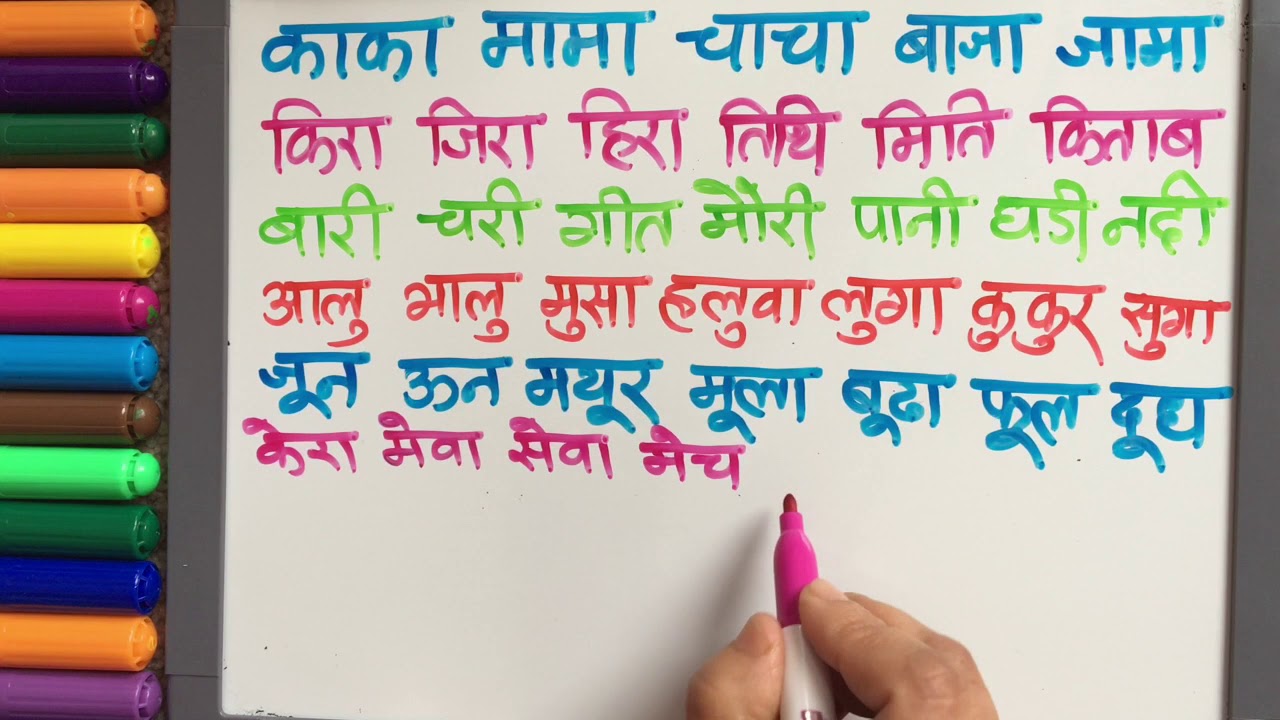 काका मामा चाचा बाजा जामा
किरा जिरा हिरा तिथि मिति किताब
बारी चरी गीत मौरी पानी घडी नदी
आलु भालु मुसा हलुवा लुगा कुकुर सुगा
जून ऊन मयूर मूला बूढा फूल दूध
केरा मेवा सेवा मेच